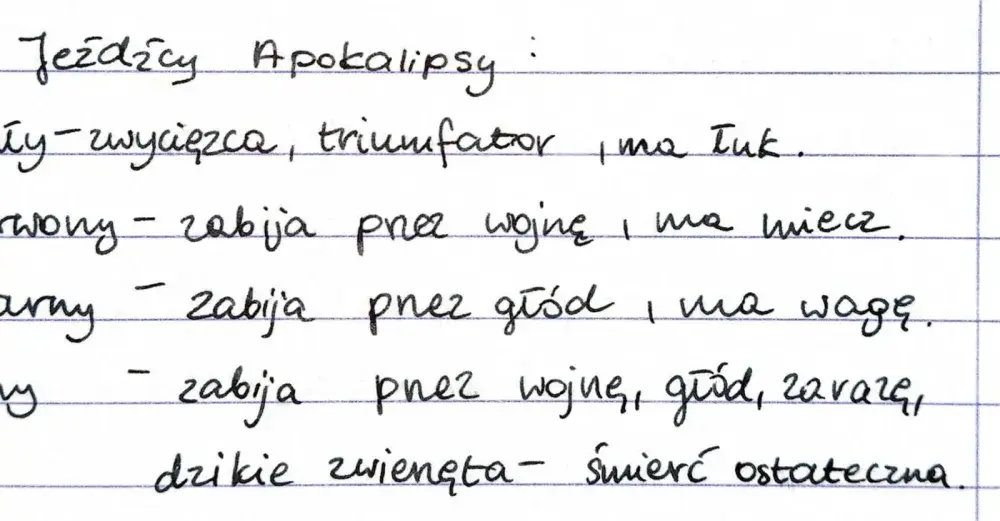 Jeźdźcy Apokalipsy :
ły – zwycięzca, triumfator, ma łuk.
rwony – zabija przez wojnę, ma miecz.
arny – zabija przez głód, ma wagę.
ny – zabija przez wojnę, głód, zarazę,
dzikie zwierzęta – śmierć ostateczna.